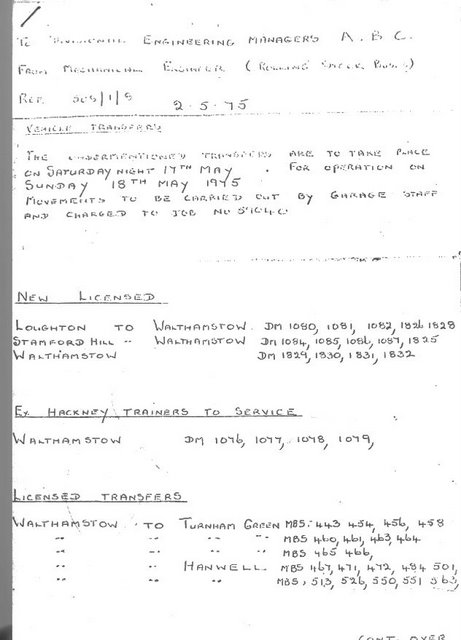 To Divisional Engineering Managers A.B.C.
From Mechanical Engineer (Rolling Stock Buses)
Ref 505/1/8
2-5-75
Vehicle Transfers
The undermentioned transfers are to take place
on Saturday night 17th May . For operation on
Sunday 18th May 1975
Movements to be carried out by garage staff
and charged to Job No
New Licensed
Loughton to Walthamstow. DM 1080, 1081, 1082, 1826 1828
Stamford Hill " Walthamstow DM 1084, 1085, 1086, 1087, 1825
Walthamstow DM 1829, 1830, 1831, 1832
Ex Hackney Trainers to Service
Walthamstow DM 1076, 1077, 1078, 1079,
Licensed Transfers
Walthamstow to Turnham Green MBS: 443 454, 456, 458
" " " " MBS 460, 461, 463, 464
" " " " MBS 465 466,
" " Hanwell. MBS 467, 471, 472, 484 501,
" " " MBS: 513, 526, 550, 551 563,
Cont. over